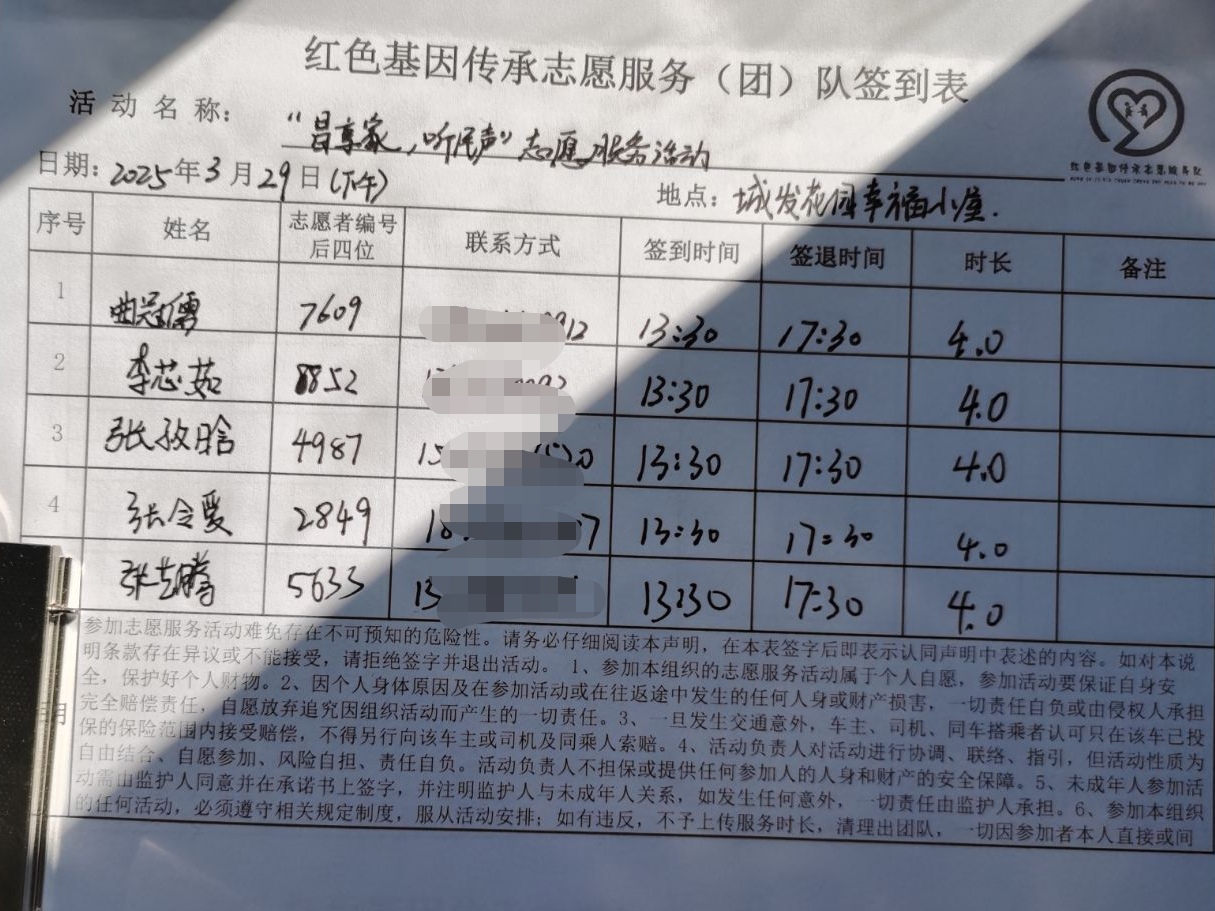 红色基因传承志愿服务（团）队签到表
活动名称：“昌享家，听民声”志愿服务活动
红色基因传承志愿服务队
日期：2025年3月29日(下午) 地点：城发花园幸福小屋.
序号 姓名 志愿者编号后四位 联系方式 签到时间 签退时间 时长 备注
1 曲冠儒 7609 13:30 17:30 4.0
2 李芯茹 8852 13:30 17:30 4.0
3 张孜晗 4987 15 13:30 17:30 4.0
4 张令爱 2849 18 7 13:30 17:30 4.0
张艺腾 5633 13 13:30 17:30 4.0
参加志愿服务活动难免存在不可预知的危险性。请务必仔细阅读本声明，在本表签字后即表示认同声明中表述的内容。如对本说
明条款存在异议或不能接受，请拒绝签字并退出活动。1、参加本组织的志愿服务活动属于个人自愿，参加活动要保证自身安
全，保护好个人财物。2、因个人身体原因及在参加活动或在往返途中发生的任何人身或财产损害，一切责任自负或由侵权人承担
完全赔偿责任，自愿放弃追究因组织活动而产生的一切责任。3、一旦发生交通意外，车主、司机、同车搭乘者认可只在该车已投
保的保险范围内接受赔偿，不得另行向该车主或司机及同乘人索赔。4、活动负责人对活动进行协调、联络、指引，但活动性质为
自由结合、自愿参加、风险自担、责任自负。活动负责人不担保或提供任何参加人的人身和财产的安全保障。5、未成年人参加活
动需由监护人同意并在承诺书上签字，并注明监护人与未成年人关系，如发生任何意外，一切责任由监护人承担。6、参加本组织
的任何活动，必须遵守相关规定制度，服从活动安排；如有违反，不予上传服务时长，清理出团队，一切因参加者本人直接或间